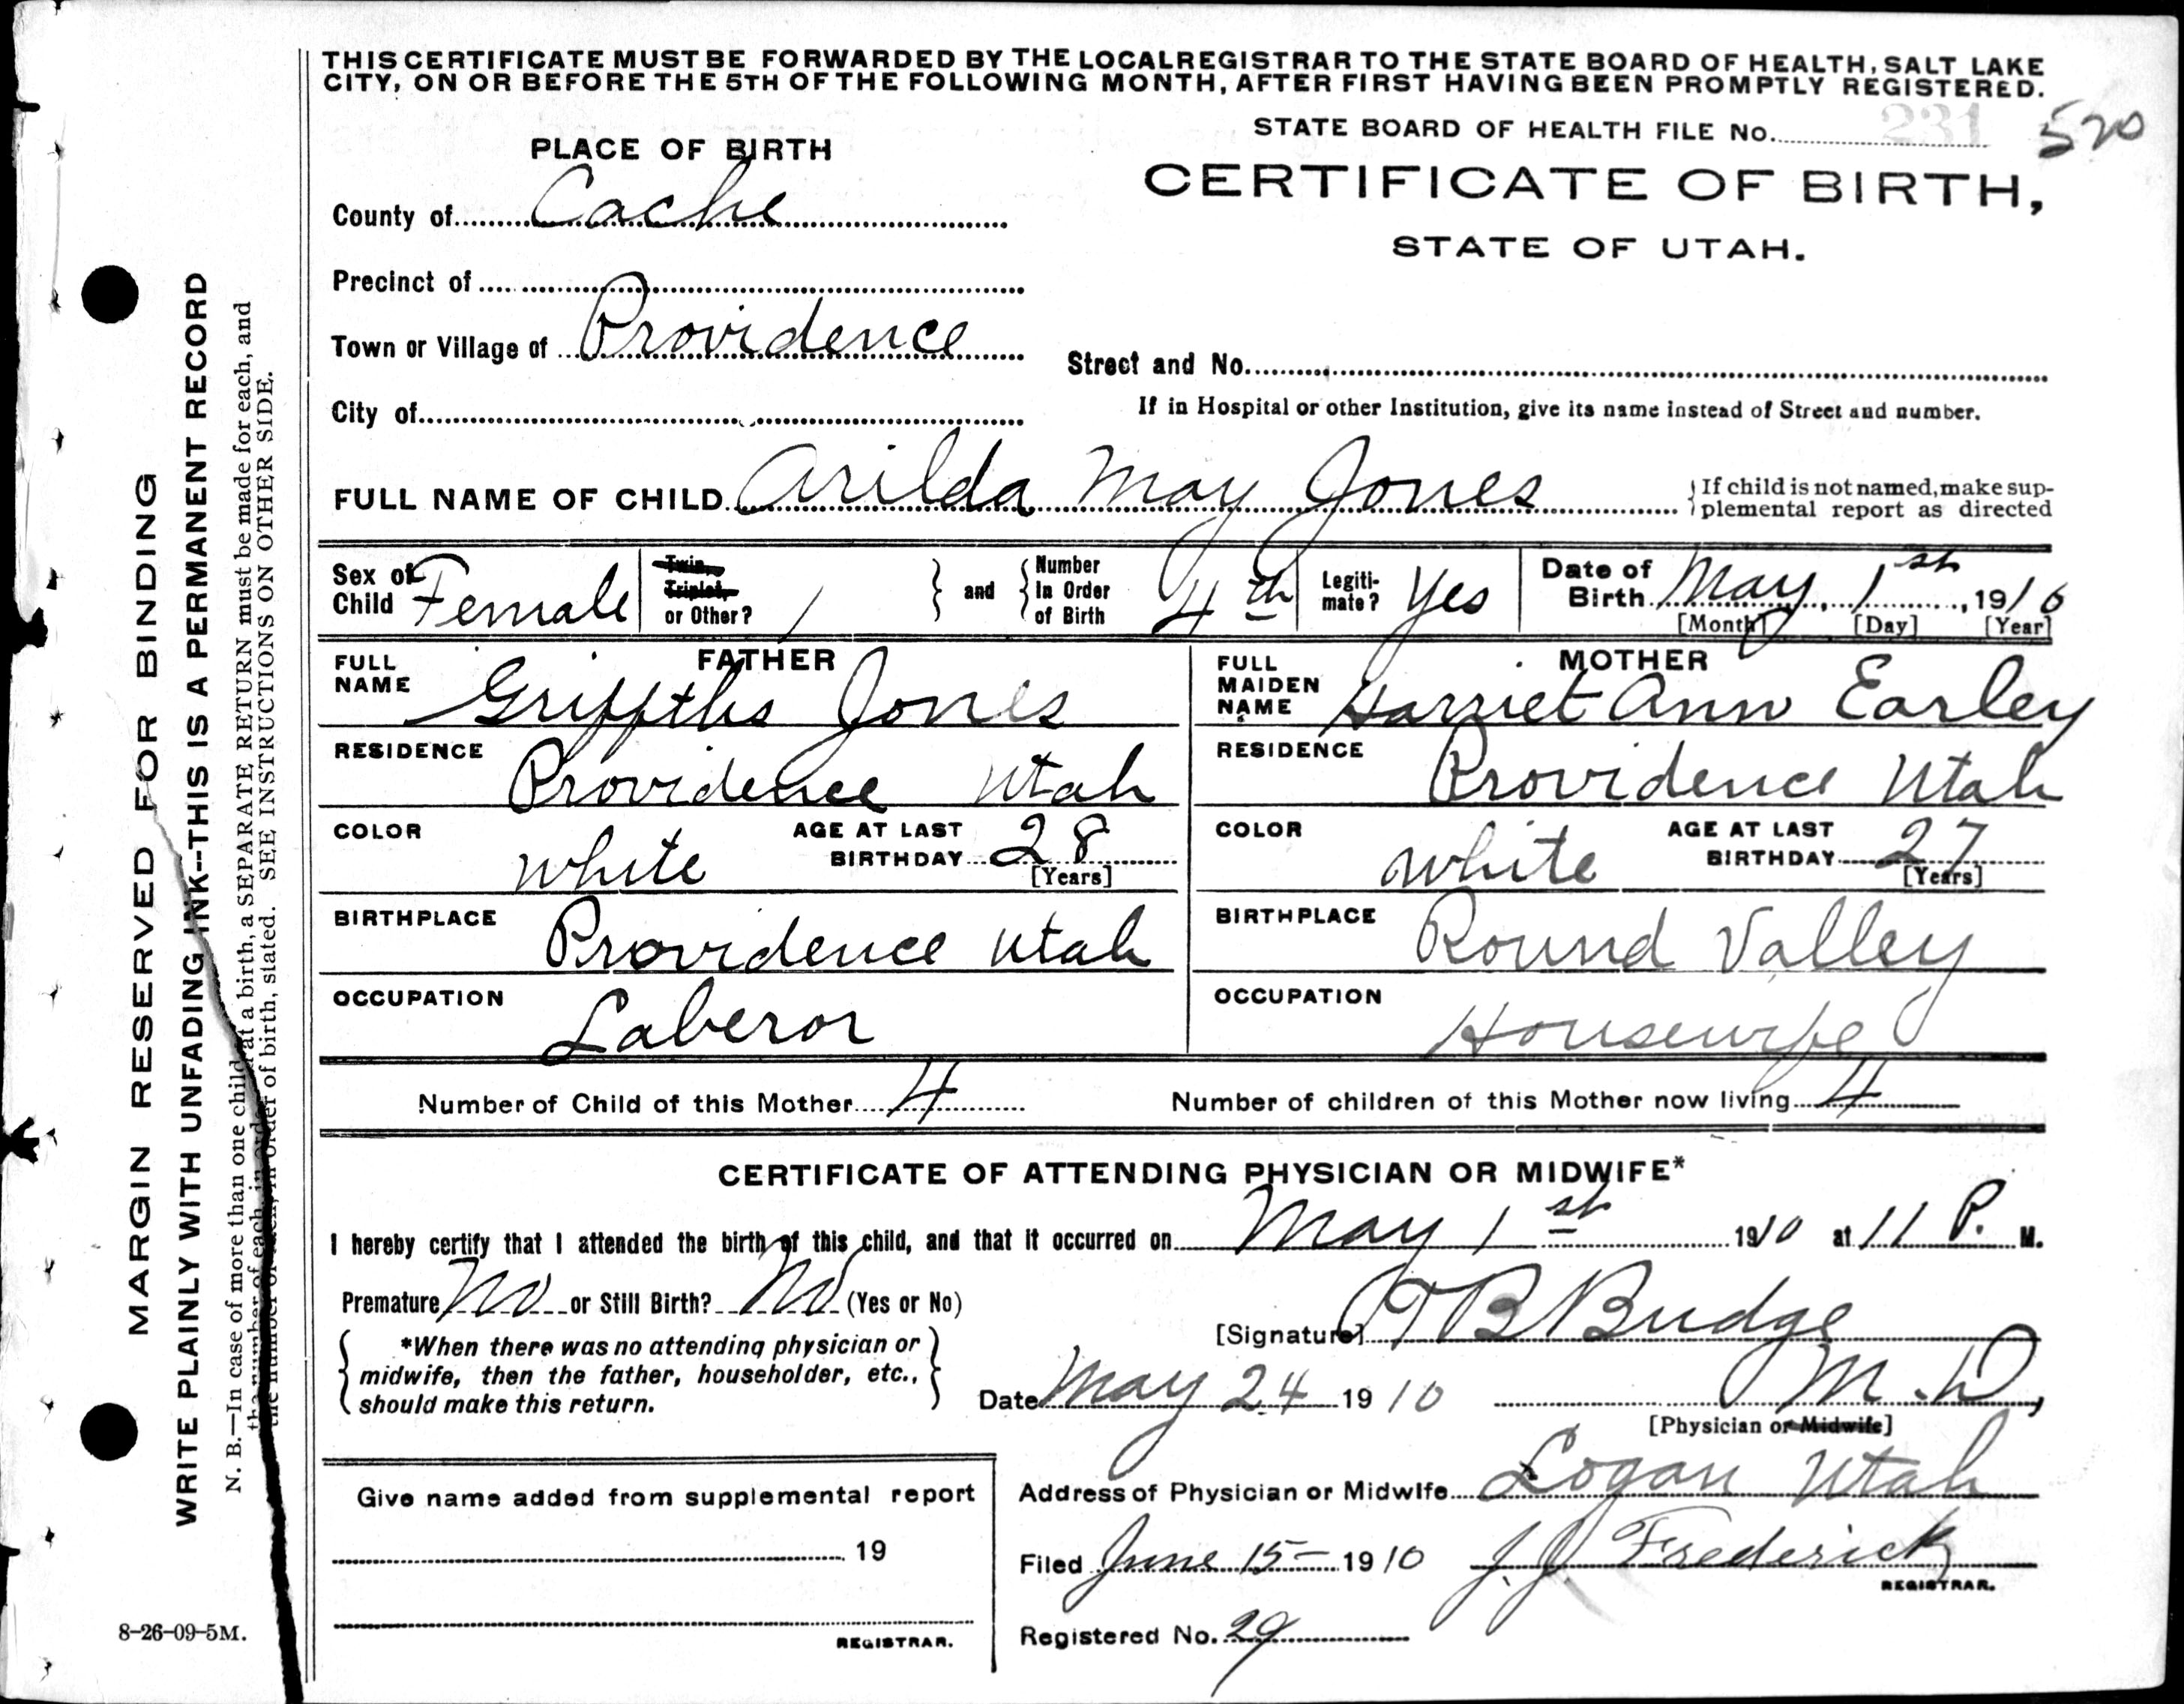 THIS CERTIFICATE MUST BE FORWARDED BY THE LOCAL REGISTRAR TO THE STATE BOARD OF HEALTH, SALT LAKE
CITY, ON OR BEFORE THE 5TH OF THE FOLLOWING MONTH, AFTER FIRST HAVING BEEN PROMPTLY REGISTERED.
STATE BOARD OF HEALTH FILE No. 231 520
PLACE OF BIRTH
CERTIFICATE OF BIRTH,
STATE OF UTAH.
County of Cache
Precinct of
Town or Village of Providence
Street and No.
City of
If in Hospital or other Institution, give its name instead of Street and number.
FULL NAME OF CHILD Arilda May Jones
If child is not named, make sup-
plemental report as directed
Sex of Child Female
Twin, Triplet, or Other? 1
and
Number In Order of Birth 4th
Legiti-mate? Yes
Date of Birth May, 1st, 1910
[Month] [Day] [Year]
FATHER
FULL NAME Griffths Jones
RESIDENCE Providence Utah
COLOR White AGE AT LAST BIRTHDAY 28
[Years]
BIRTHPLACE Providence Utah
OCCUPATION Laberor
MOTHER
FULL MAIDEN NAME Harriet Ann Earley
RESIDENCE Providence Utah
COLOR White AGE AT LAST BIRTHDAY 27
[Years]
BIRTHPLACE Round Valley
OCCUPATION Housewife
Number of Child of this Mother 4 Number of children of this Mother now living 4
CERTIFICATE OF ATTENDING PHYSICIAN OR MIDWIFE*
I hereby certify that I attended the birth of this child, and that it occurred on May 1st 1910 at 11 P. M.
Premature No or Still Birth? No (Yes or No)
[Signature] T B Budge
*When there was no attending physician or
midwife, then the father, householder, etc.,
should make this return.
Date May 24 1910 M.D,
[Physician or Midwife]
Address of Physician or Midwife Logan Utah
Filed June 15- 1910 J. J. Frederick
REGISTRAR.
Registered No. 29
Give name added from supplemental report
19
REGISTRAR.
MARGIN RESERVED FOR BINDING
WRITE PLAINLY WITH UNFADING INK--THIS IS A PERMANENT RECORD
N. B.—In case of more than one child at a birth, a SEPARATE RETURN must be made for each, and
the number of each, in order of birth, stated. SEE INSTRUCTIONS ON OTHER SIDE.
8-26-09-5M.